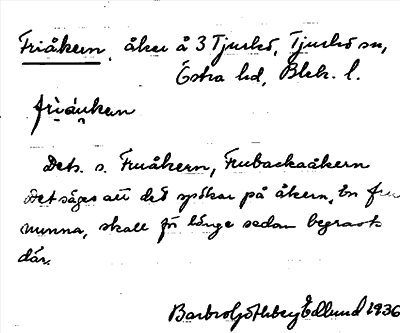 Friåkern, åker å 3 Tjurkö, Tjurkö sn,
Östra hd, Blek. l.
Dets. s. Fruåkern, Frubackaåkern
Det säges att det spökar på åkern. En fru
nunna, skall för länge sedan begravts
där.
Barbro Götheborg Edlund 1936